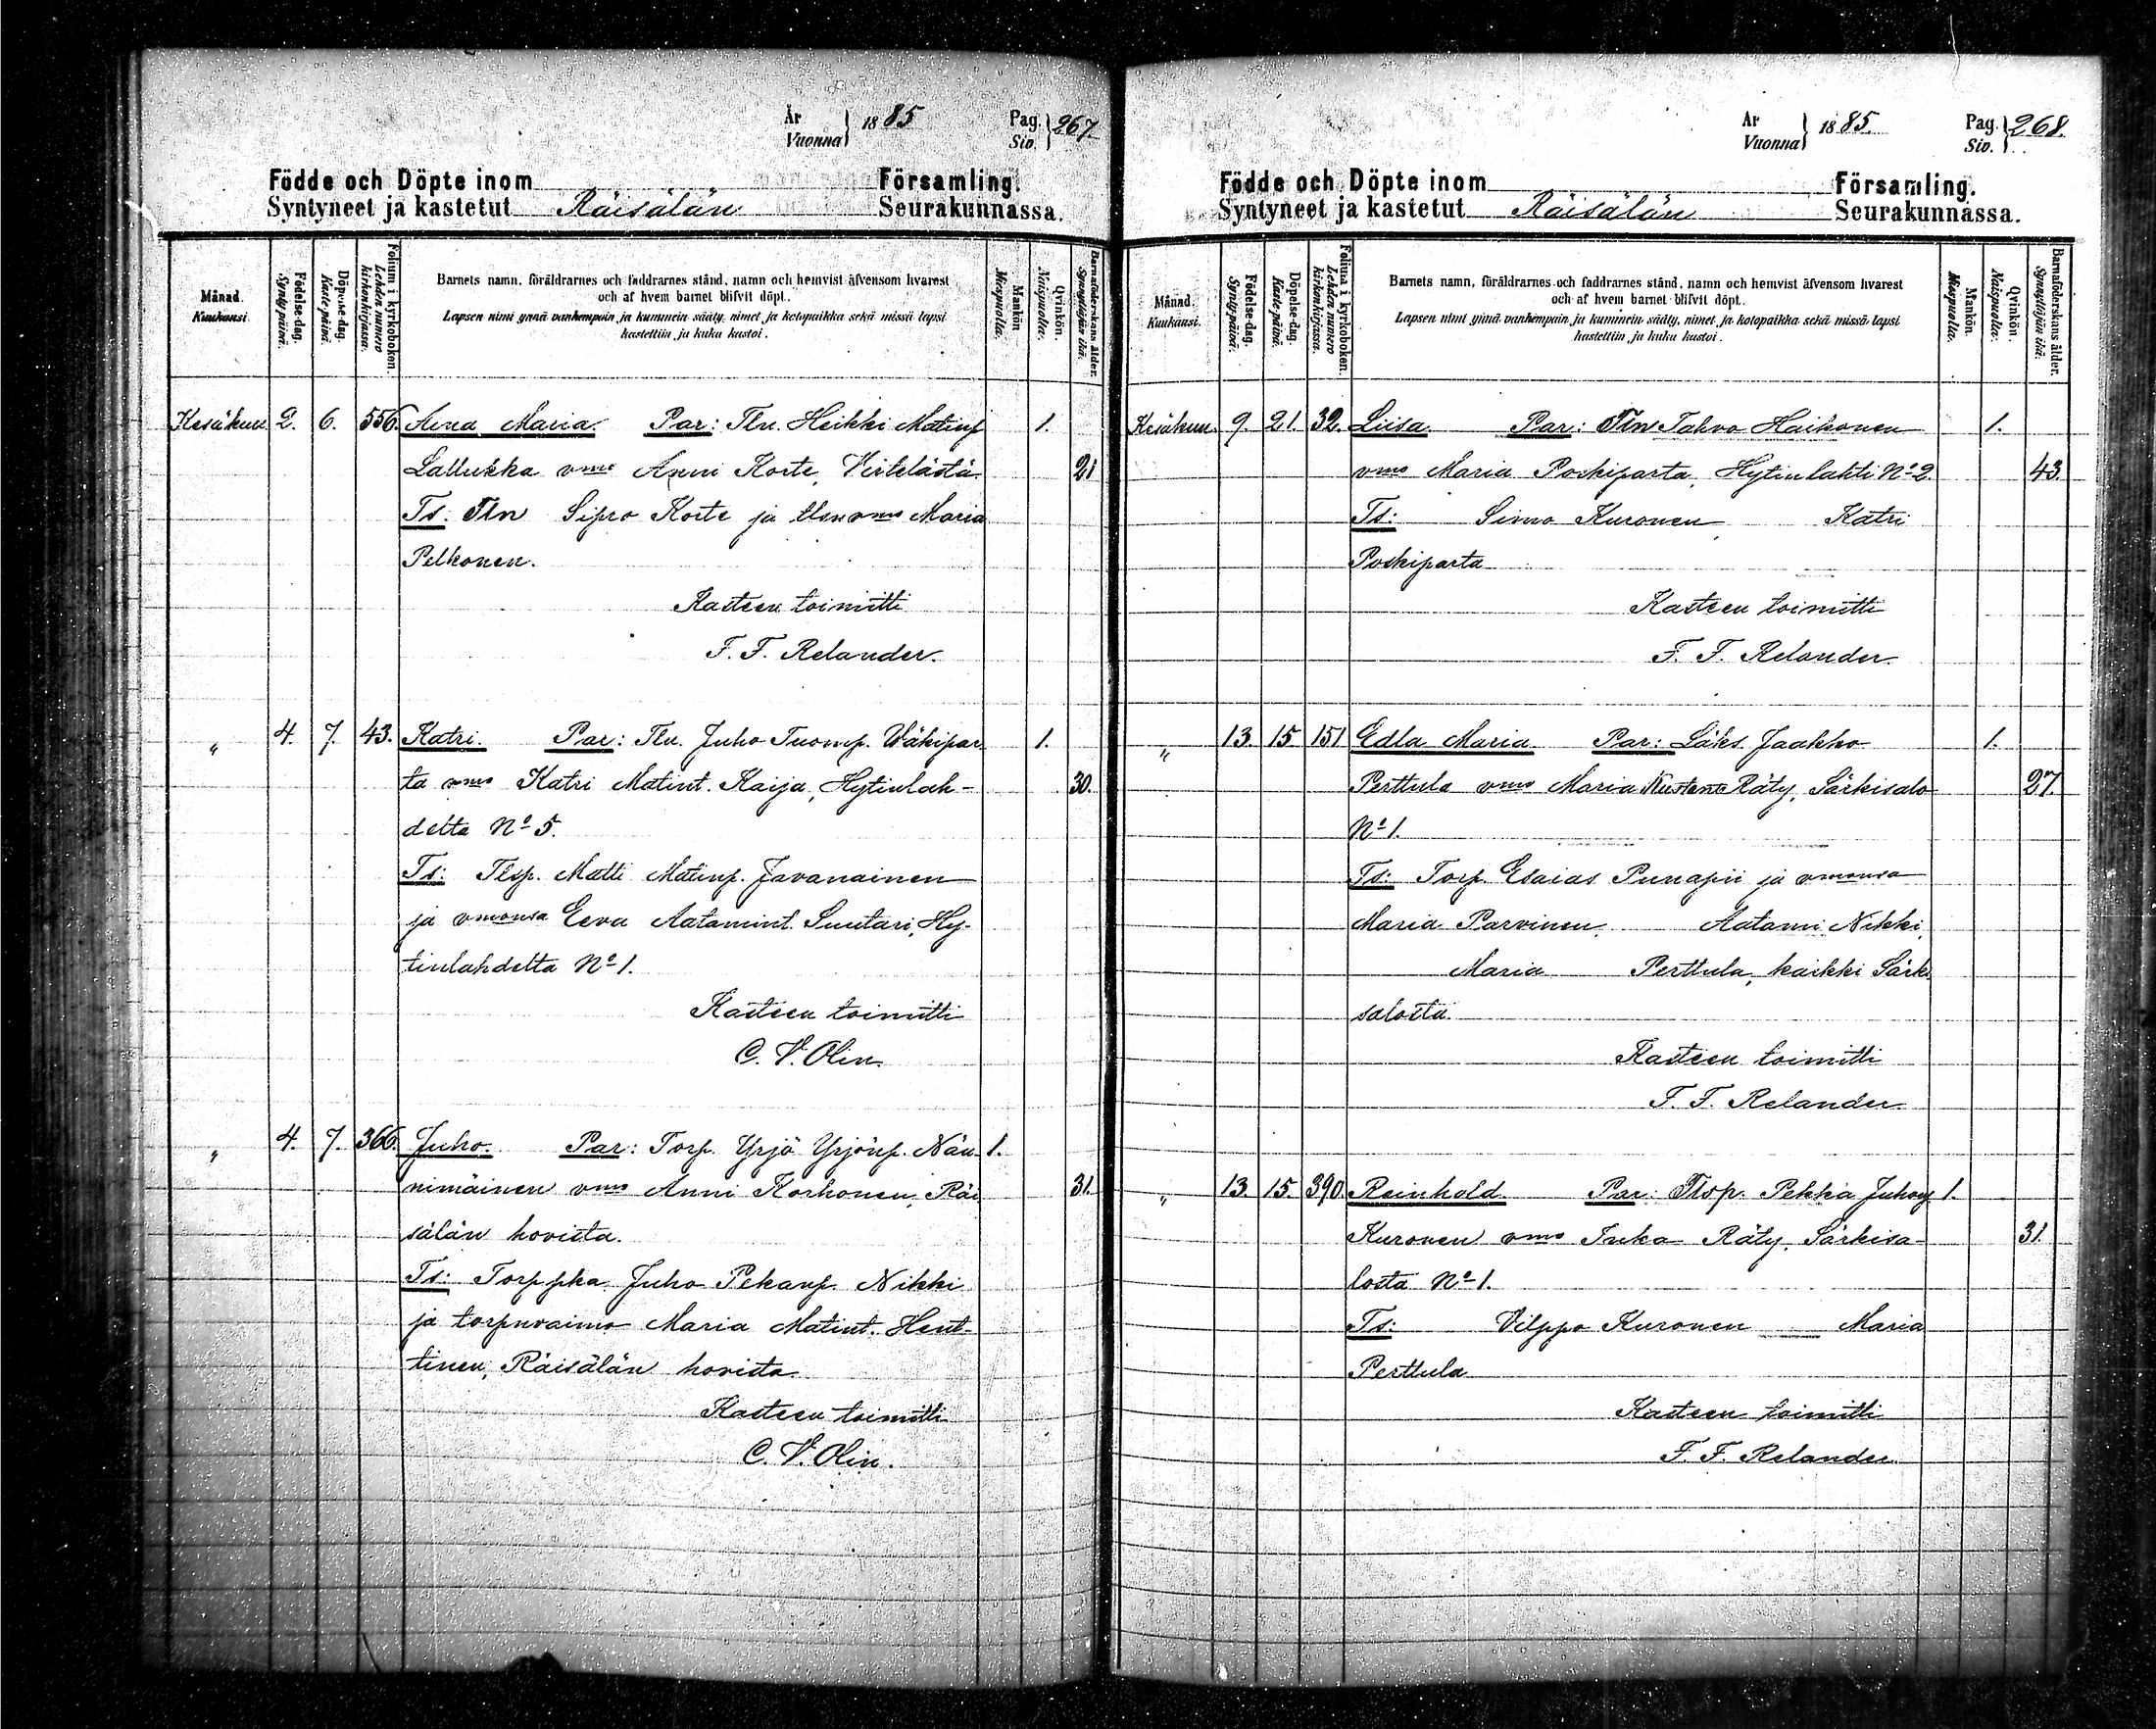 År
Vuonna } 1885
Pag.
Siv. } 267.
Födde och Döpte inom Församling.
Syntyneet ja kastetut Räisälän Seurakunnassa.
Månad.
Kuukausi.
Födelse-dag.
Syntypäivä.
Döpelse-dag.
Kaste-päivä.
Folium i kyrkoboken.
Lehden numero kirkonkirjassa.
Barnets namn, föräldrarnes och faddrarnes stånd, namn och hemvist äfvensom hvarest
och af hvem barnet blifvit döpt.
Lapsen nimi ynnä vanhempain ja kummein sääty, nimet ja kotopaikka sekä missä lapsi
kastettiin ja kuka kastoi.
Mankön.
Miespuolia.
Qvinkön.
Naispuolia.
Barnaföderskans ålder.
Synnyttäjän ikä.
Kesäkuu 2. 6. 556. Aina Maria. Par: Tln. Heikki Matinp. 1.
Lallukka vmo Anni Korte, Virtelästä 21
Ts. Tln Sipro Korte ja tlen vmo Maria
Pelkonen.
Kasteen toimitti
F. F. Relander.
" 4. 7. 43. Katri. Par: Tln. Juho Tuomp. Wäkipar 1.
ta vmo Katri Matint. Kaija, Hytinlah- 30.
delta No 5.
Ts: Tlsp. Matti Matinp. Javanainen
ja vmonsa Eeva Aatamint. Suutari, Hy-
tinlahdelta No 1.
Kasteen toimitti
C. V. Olin.
" 4. 7. 366. Juho. Par: Torp. Yrjö Yrjönp. Nän 1.
nimäinen vmo Anni Korhonen, Räi 31.
sälän hovista.
Ts: Torppka Juho Pekanp. Nikki
ja torpuvaimo Maria Matint. Hent-
tinen, Räisälän hovista.
Kasteen toimitti
C. V. Olin.
År
Vuonna } 1885.
Pag.
Siv. } 268.
Födde och Döpte inom Församling.
Syntyneet ja kastetut Räisälän Seurakunnassa.
Månad.
Kuukausi.
Födelse-dag.
Syntypäivä.
Döpelse-dag.
Kaste-päivä.
Folium i kyrkoboken.
Lehden numero kirkonkirjassa.
Barnets namn, föräldrarnes och faddrarnes stånd, namn och hemvist äfvensom hvarest
och af hvem barnet blifvit döpt.
Lapsen nimi ynnä vanhempain ja kummein sääty, nimet ja kotopaikka sekä missä lapsi
kastettiin ja kuka kastoi.
Mankön.
Miespuolia.
Qvinkön.
Naispuolia.
Barnaföderskans ålder.
Synnyttäjän ikä.
Kesäkuu. 9. 21. 32. Liisa. Par: Tln Tahvo Haikonen 1.
vmo Maria Poskiparta, Hytinlahti No 2. 43.
Ts: Simo Kuronen Katri
Poskiparta
Kasteen toimitti
F. F. Relander
" 13. 15. 151 Edla Maria. Par: Läks. Jaakko 1.
Perttula vmo Maria Räty, Särkisalo 27.
No 1.
Ts: Torp. Esaias Punapii ja vmonsa
Maria Parvinen. Aatami Nikki,
Maria Perttula, kaikki Särki
salosta.
Kasteen toimitti
F. F. Relander
" 13. 15. 390. Reinhold. Par: Tlsp. Pekka Juhonp 1.
Kuronen vmo Inka Räty, Särkisa- 31.
losta No 1.
Ts: Vilppo Kuronen Maria
Perttula
Kasteen toimitti
F. F. Relander